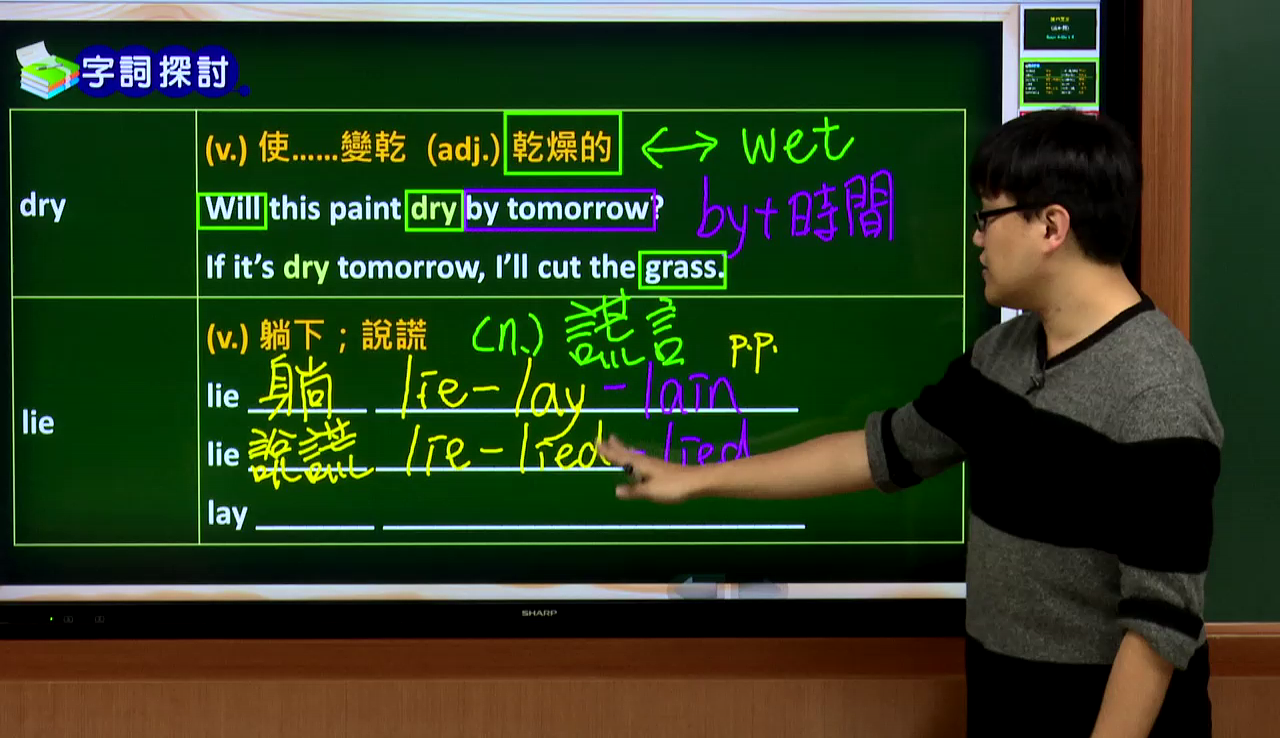 字詞探討
dry
(v.) 使……變乾 (adj.) 乾燥的 ↔ wet
Will this paint dry by tomorrow? by+時間
If it's dry tomorrow, I'll cut the grass.
lie
(v.) 躺下；說謊 (n.) 謊言
p.p.
lie 躺 lie-lay-lain
lie 說謊 lie-lied-lied
lay
SHARP